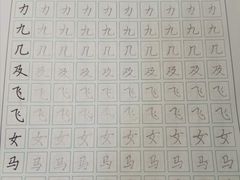 力力力力力力力力力
九九九九九九九九九
几几几几几几几几几
及及及及及及及及及
飞飞飞飞飞飞飞飞飞
飞飞飞飞飞飞飞飞飞
女女女女女女女女女
马马马马马马马马马